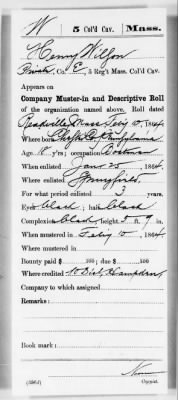 W 5 Col'd Cav. Mass.
Henry Wilson
Private, Co. E, 5 Reg't Mass. Col'd Cav.
Appears on
Company Muster-in and Descriptive Roll
of the organization named above. Roll dated
Readville Mass Feby 10, 1864
Where born Co, Pennsylvania
Age yrs; occupation Boatman
When enlisted Jan 25, 1864
Where enlisted Springfield
For what period enlisted 3 years.
Eyes black; hair black
Complexion black; height 5 ft. 9 in.
When mustered in Feby 10, 1864
Where mustered in
Bounty paid $ 100; due $ 100
Where credited 10 Dist, Hampden
Company to which assigned
Remarks:
Book mark:
(356d) Copyist.